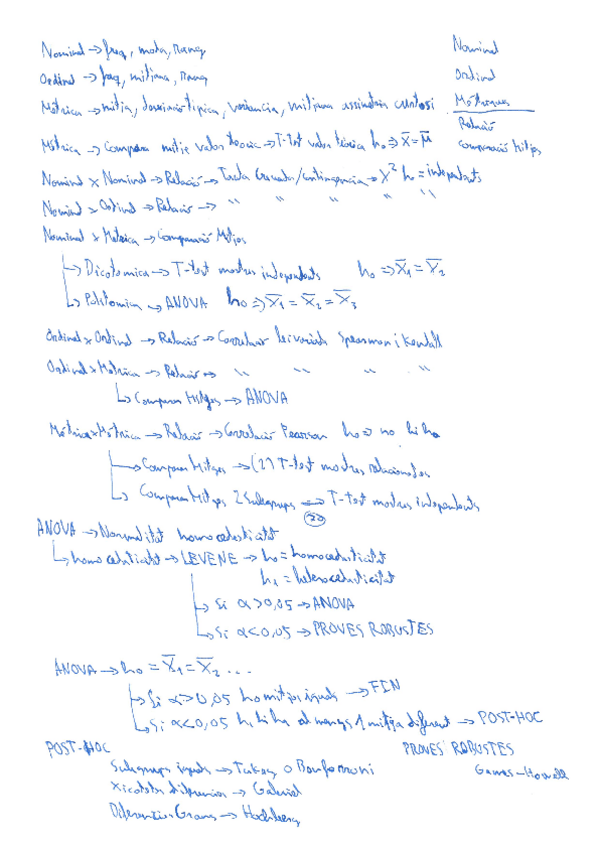 Nominal → freq, moda, rang
Ordinal → freq, mitjana, rang
Mètrica → mitja, desviació típica, variancia, mitjana assimetria curtosi
Nominal
Ordinal
Mètriques
Relació
Comparació Mitjes
Mètrica → Comparar mitja valor teoric → T-Test valor teòric h₀ ⇒ X̄ = μ̄
Nominal x Nominal → Relació → Taula Creuada/contingencia → X² h₀ = independents
Nominal x Ordinal → Relació → " " " " "
Nominal x Metrica → Comparació Mitjes
↳ Dicotomica → T-test mostres independents h₀ ⇒ X̄₁ = X̄₂
↳ Politomica → ANOVA h₀ ⇒ X̄₁ = X̄₂ = X̄₃
Ordinal x Ordinal → Relació → Correlació bivariada Spearman i Kendall
Ordinal x Mètrica → Relació → " " " "
↳ Comparar Mitjes → ANOVA
Mètrica x Mètrica → Relació → Correlació Pearson h₀ ⇒ no hi ha
↳ Comparar Mitjes → (2) T-test mostres relacionades
↳ Comparar Mitjes 2 Subgrups → T-test mostres independents
ANOVA → Normalitat homocedasticitat
↳ homocedasticitat → LEVENE → h₀ = homocedasticitat
h₁ = heterocedasticitat
↳ Si α > 0,05 → ANOVA
↳ Si α < 0,05 → PROVES ROBUSTES
ANOVA → h₀ = X̄₁ = X̄₂ ...
↳ Si α > 0,05 h₀ mitjes iguals → FIN
↳ Si α < 0,05 h₁ hi ha al menys 1 mitja diferent → POST-HOC
POST-HOC
PROVES ROBUSTES
Subgrups iguals → Tukey o Bonferroni
Games-Howell
Xicotetes diferencies → Gabriel
Diferencies Grans → Hochberg